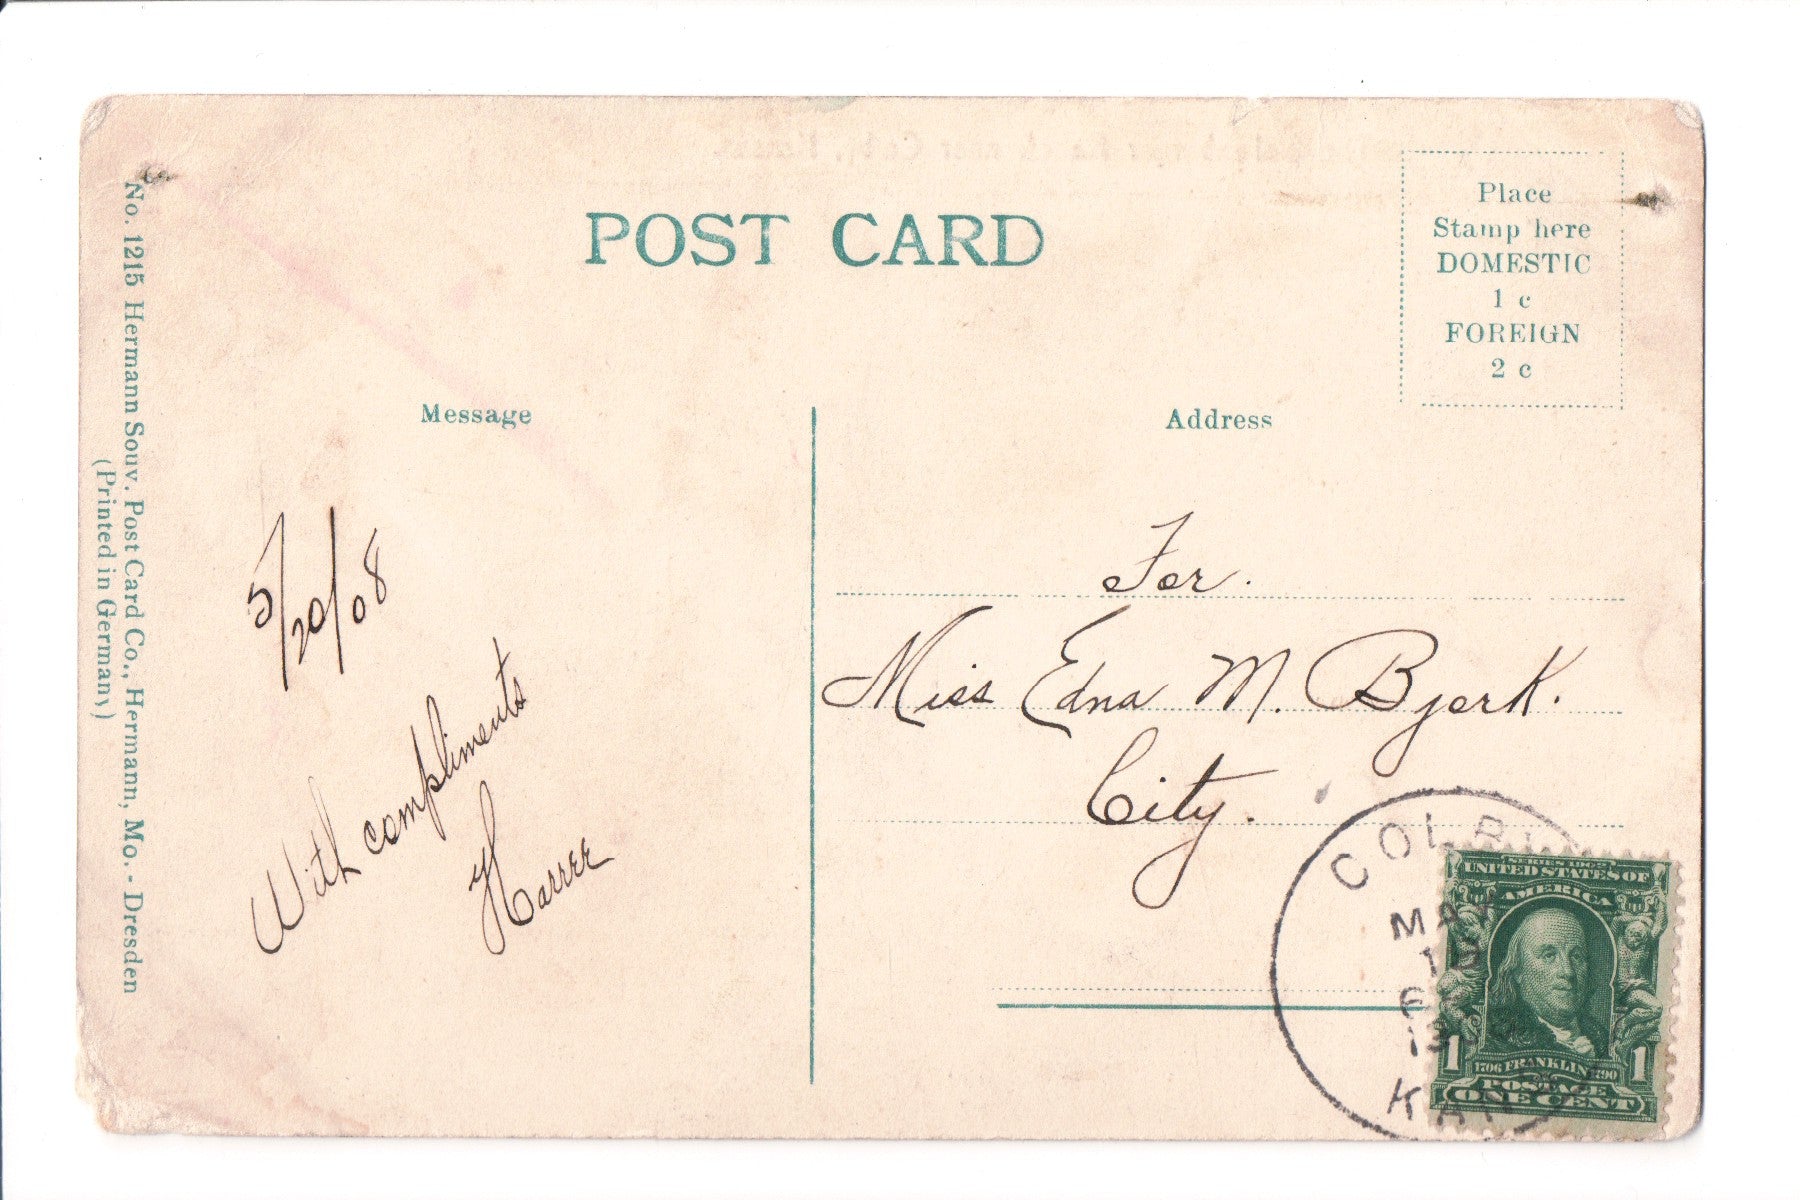 POST CARD
Place
Stamp here
DOMESTIC
1 c
FOREIGN
2 c
Message
Address
No. 1215 Hermann Souv. Post Card Co., Hermann, Mo. - Dresden
(Printed in Germany)
5/20/08
With compliments
For.
Miss Edna M. Bjork.
City.
COLBY
KANS
SERIES 1902
UNITED STATES OF
AMERICA
1 1
1706 FRANKLIN 1790
POSTAGE
ONE CENT